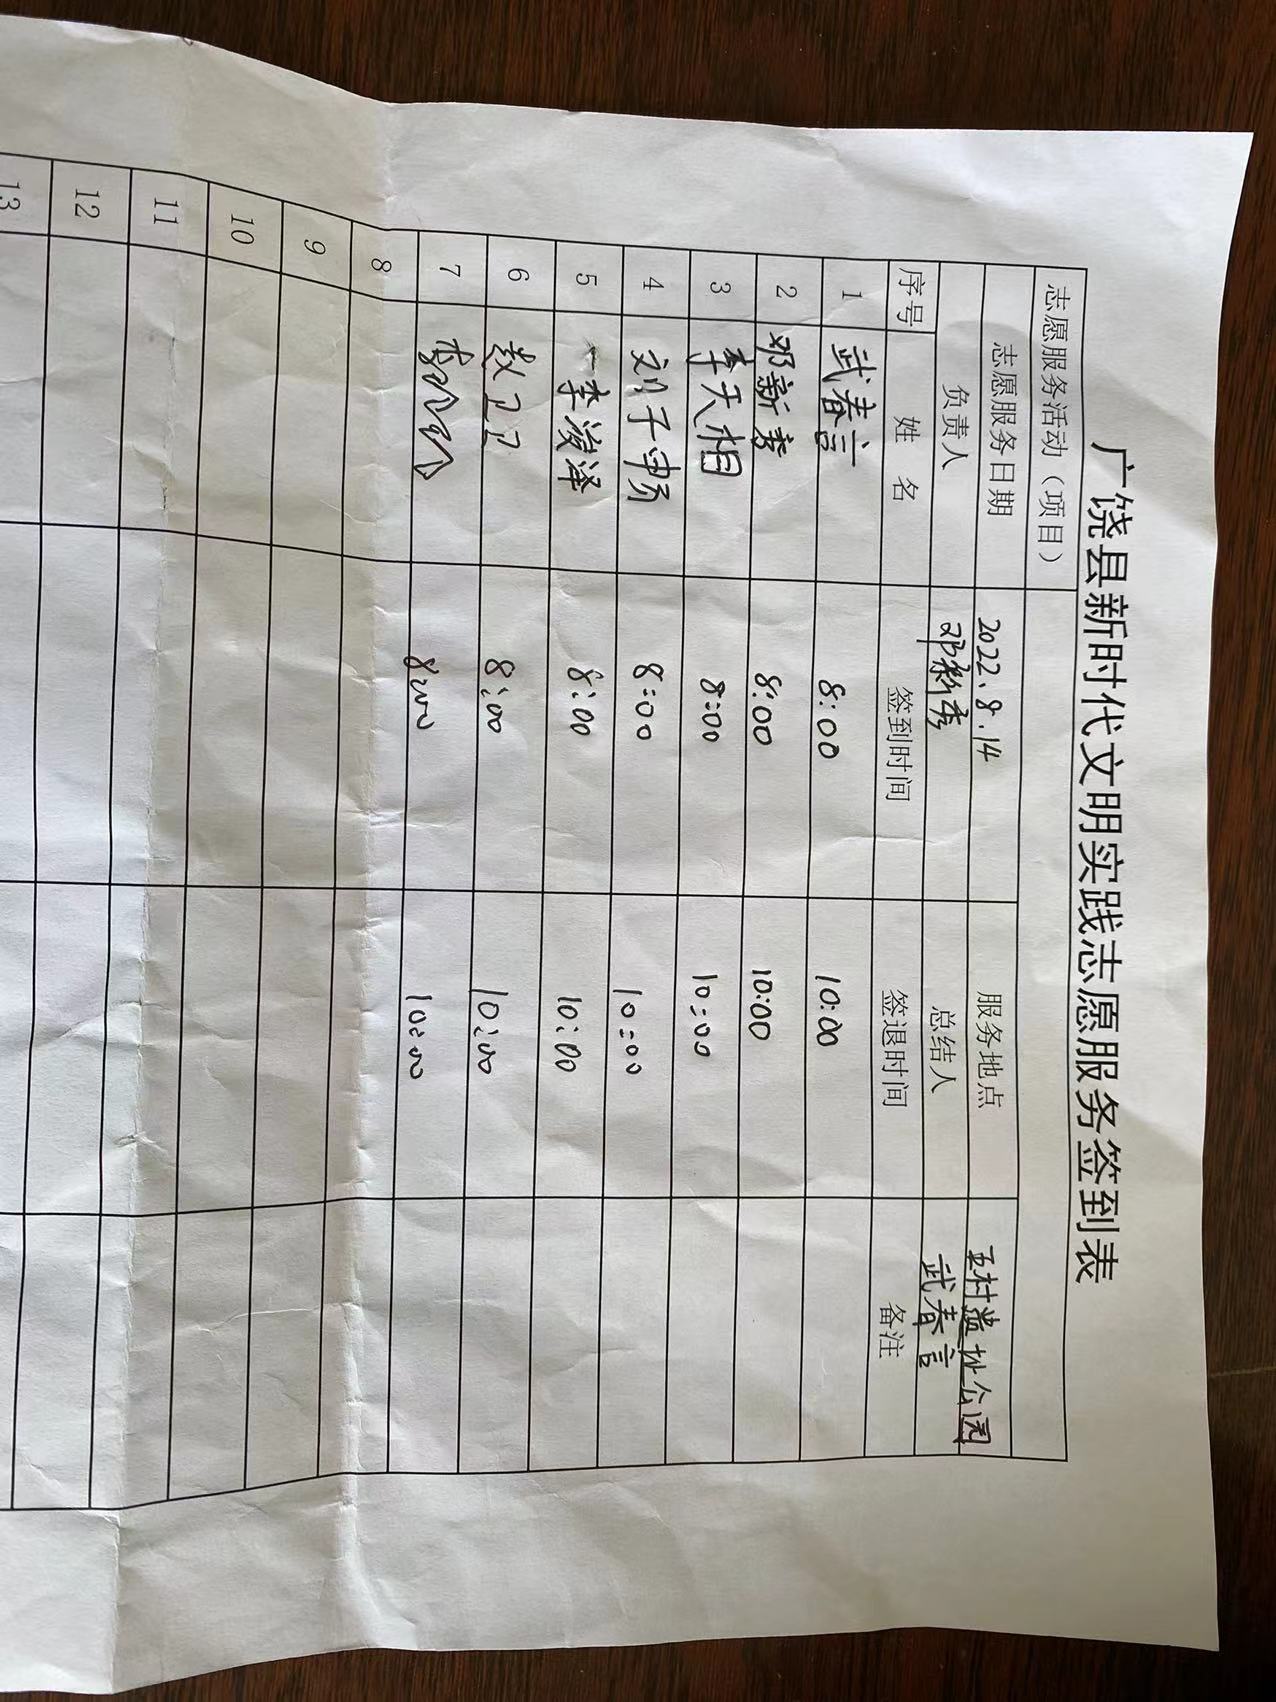 广饶县新时代文明实践志愿服务签到表
志愿服务活动（项目）
志愿服务日期 2022.8.14 服务地点 五村盐址公园
负责人 邓新秀 总结人 武春言
序号 姓 名 签到时间 签退时间 备注
1 武春言 8:00 10:00
2 邓新秀 8:00 10:00
3 李天相 8:00 10:00
4 刘子畅 8:00 10:00
5 李浚泽 8:00 10:00
6 8:00 10:00
7 8:00 10:00
8
9
10
11
12
13